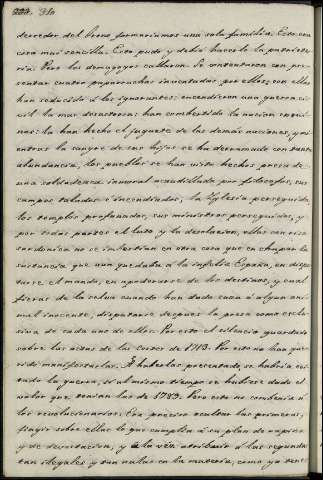 310
derredor del trono formariamos una sola familia. Esto era
cosa mui sencilla. Esto pudo y debió hacerlo la
Pero los demagogos callaron. Se contentaron con pre-
sentar cuatro paparruchas inventadas por ellos; con ellas
han seducido á los ignorantes: encendieron una guerra ci-
vil la mas desastrosa: han combertido la nacion en
nas: la han hecho el juguete de las demas naciones, y mi-
entras la sangre de sus hijos se ha derramado con tanta
abundancia, los pueblos se han visto hechos presa de
una soldadesca inmoral acaudillada por filosofos, sus
campos talados é incendiados, la Yglesia perseguida,
los templos profanados, sus ministros perseguidos, y
por todas partes el luto y la desolacion, ellos con risa
sardonica no se imbertian en otra cosa que en chupar la
sustancia que aun quedaba á la infeliz España, en dispu-
tarse el mando, en apoderarse de los destinos, y cual
fieras de la selva cuando han dado caza á algun ani-
mal inocente, disputarse despues la presa como exclu-
siva de cada uno de ellos. Por esto el silencio guardado
sobre las actas de las Cortes de 1713. Por esto no han que-
rido manifestarlas. A haberlas presentado se habria evi-
tado la guerra, si al mismo tiempo se hubiese dado el
valor que tenian las de 1789. Pero esto no combenia á
los revolucionarios. Era preciso ocultar las primeras,
fingir sobre ellas lo que cumplia á su plan de rapiña
y de devastacion, y á la vez atribuir á las segundas
tan ilegales y tan nulas en la materia, como ya tene-